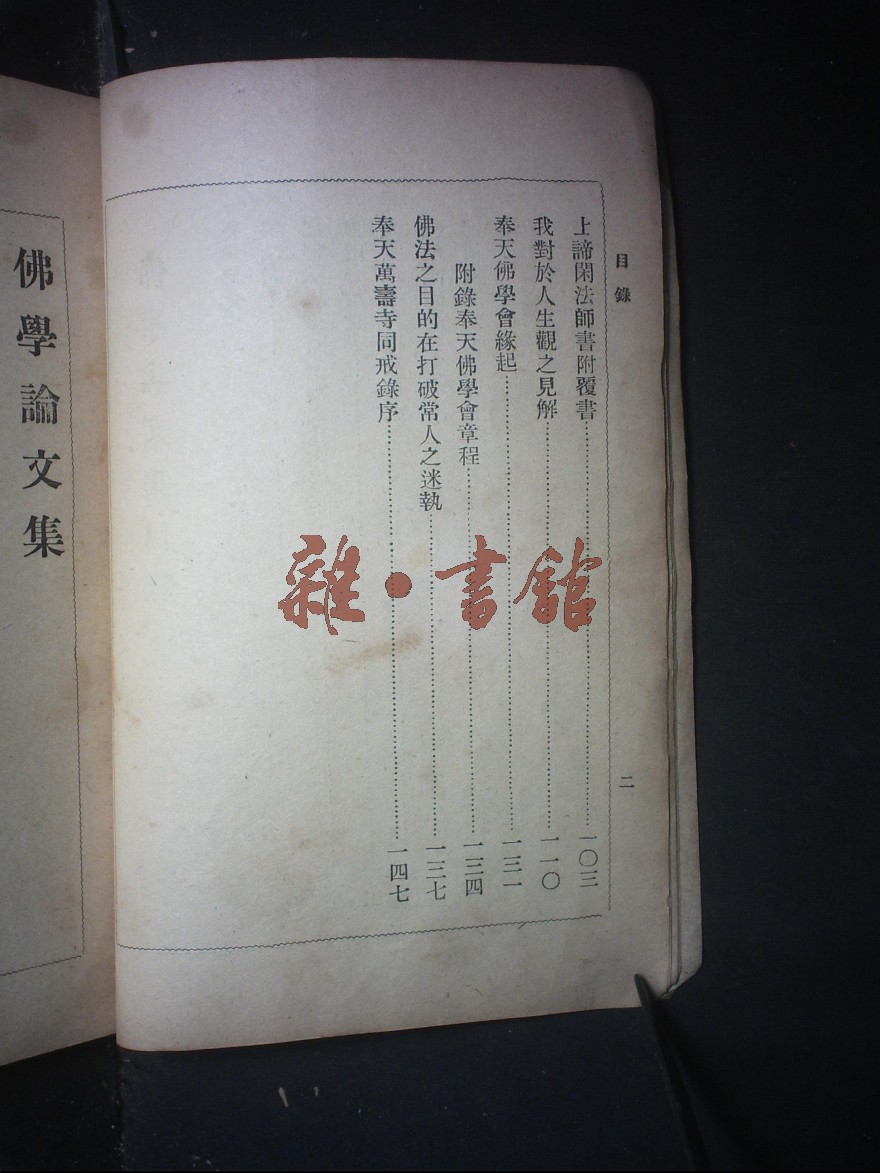 目錄
二
上諦閑法師書附覆書……一〇三
我對於人生觀之見解……一一〇
奉天佛學會緣起……一三一
附錄奉天佛學會章程……一三四
佛法之目的在打破常人之迷執……一三七
奉天萬壽寺同戒錄序……一四七
佛學論文集
雜·書舘